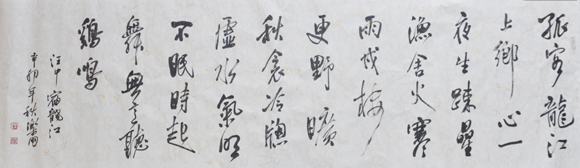 孤客龍江
上鄉心一
夜生疎星
漁舍火寒
雨戍樓
更野曠
秋衾冷牕
虛水氣明
不眠時起
舞無意聽
鷄鳴
汪中 宿龍江
辛卯年秋